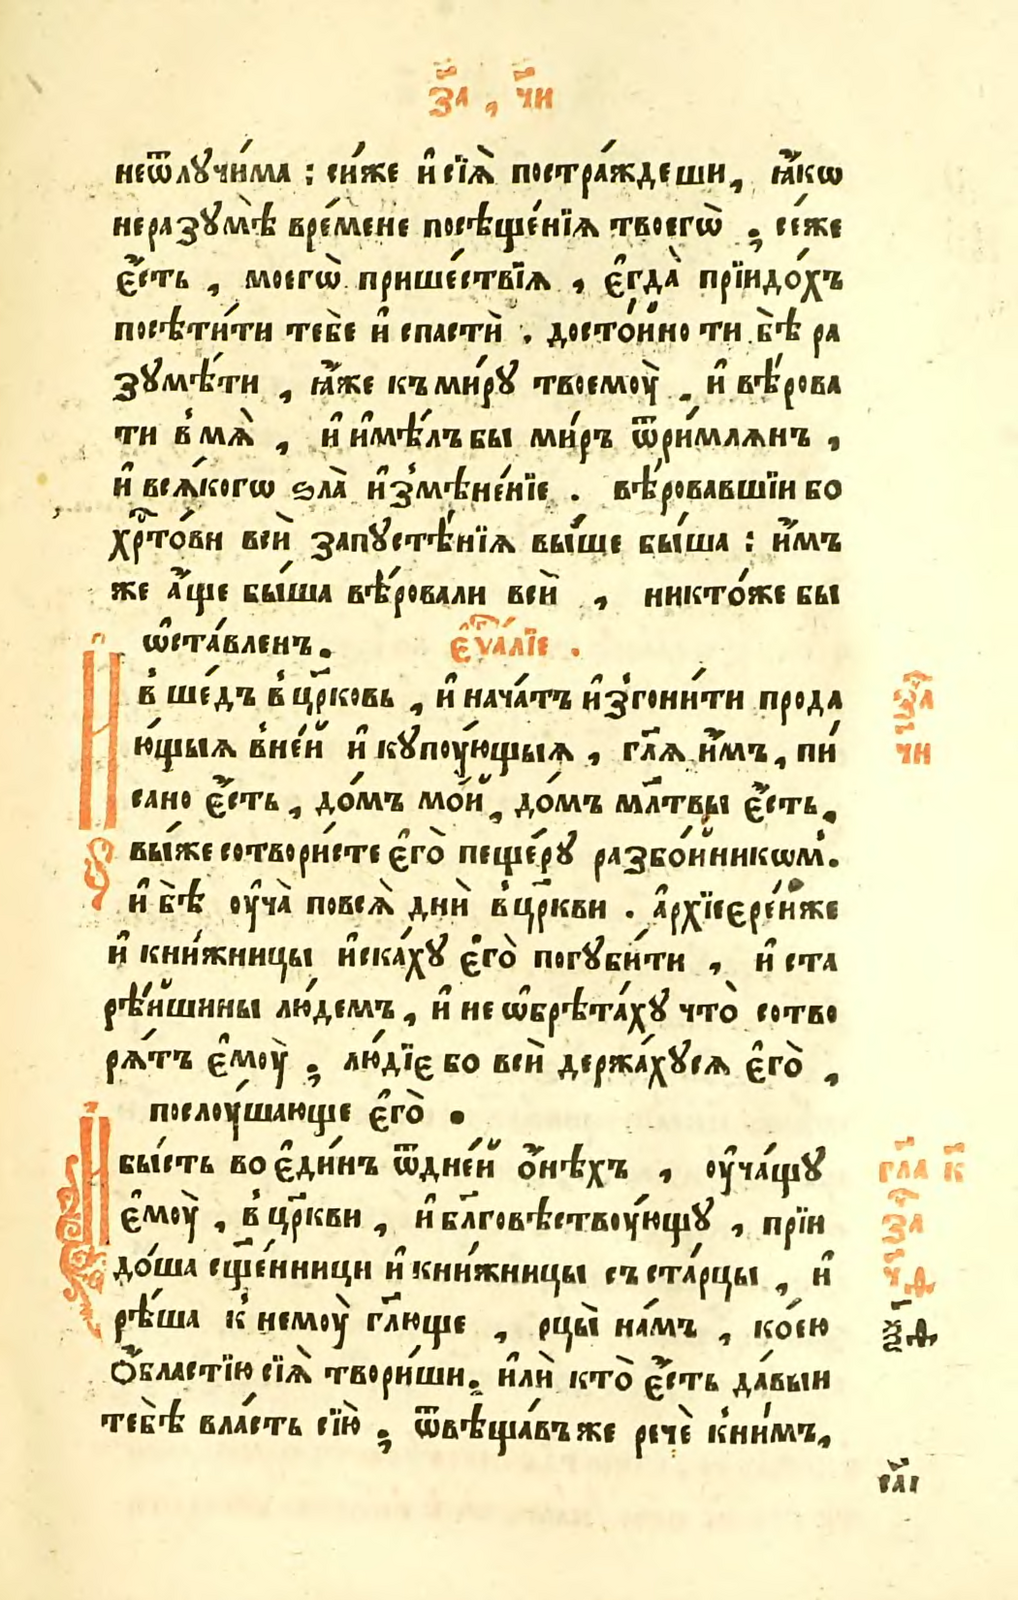 за҃ , чи҃
неѿлꙋчи́ма ; си́же и҆ сїѧ̀ постра́ждеши , ꙗ҆́кѡ
неразꙋмѣ̀ вре́мене посѣще́нїѧ твоегѡ̀ ; се́же
є҆́сть , моегѡ̀ прише́ствїѧ , є҆гда̀ прїидо́хъ
посѣти́ти тебѐ и҆ спастѝ . досто́йно ти бѣ̀ ра
зꙋмѣ́ти , ꙗ҆́же къ ми́рꙋ твоемоу̀ , и҆ вѣ́рова
ти в мѧ̀ , и҆ и҆мѣ́лъ бы ми́ръ ѿ ри́млѧнъ ,
и҆ всѧ́когѡ ѕла̀ и҆змѣне́нїе . вѣ́ровавшїи бо
хрⷭ҇то́ви всѝ запꙋстѣ́нїѧ вы́ше бы́ша : и҆́мъ
же а҆́ще бы́ша вѣ́ровали всѝ , никто́же бы
ѡ҆ста́вленъ . є҆ѵⷢ҇а́лїе .
И҆ в ше́дъ в цр҃ковь , и҆ нача́тъ и҆згони́ти прода
ю́щыѧ в не́й и҆ кꙋпоу́ющыѧ , гл҃ѧ и҆́мъ , пи́
сано є҆́сть , до́мъ мо́й , до́мъ мл҃твы є҆́сть ,
вы́же сотвори́сте є҆го̀ пеще́рꙋ разбо́йникѡм .
и҆ бѣ̀ оу҆ча̀ по всѧ̀ днѝ в цр҃кви . а҆рхїере́иже
и҆ кни́жницы и҆ска́хꙋ є҆го̀ погꙋби́ти , и҆ ста
рѣ́йшины лю́демъ , и҆ не ѡ҆брѣта́хꙋ что̀ сотво
рѧ́тъ є҆моу̀ ; лю́дїе бо всѝ держа́хꙋсѧ є҆го̀ ,
послоу́шающе є҆го̀ .
И҆ бы́сть во є҆ди́нъ ѿ дне́й ѻ҆́нѣхъ , оу҆ча́щꙋ
є҆моу̀ , в цр҃кви , и҆ бл҃говѣствоу́ющꙋ , прїи
до́ша сщ҃е́нницы и҆ кни́жницы съ ста́рцы , и҆
рѣ́ша к немоу̀ гл҃юще , рцы̀ на́мъ , ко́ею
ѻ҆́бластїю сїѧ̀ твори́ши , и҆лѝ кто̀ є҆́сть да́выи
тебѣ̀ вла́сть сїю̀ ; ѿвѣща́въже речѐ к ни́мъ ,
за҃
чи҃
гл҃а к҃
за҃
ч҃ѳ